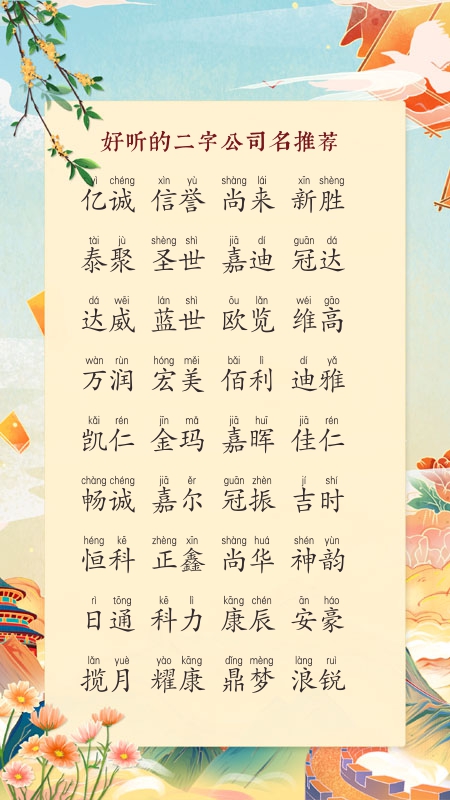 好听的二字公司名推荐
yì chéng xìn yù shàng lái xīn shèng
亿诚 信誉 尚来 新胜
tài jù shèng shì jiā dí guān dá
泰聚 圣世 嘉迪 冠达
dá wēi lán shì ōu lǎn wéi gāo
达威 蓝世 欧览 维高
wàn rùn hóng měi bǎi lì dí yǎ
万润 宏美 佰利 迪雅
kǎi rén jīn mǎ jiā huī jiā rén
凯仁 金玛 嘉晖 佳仁
chàng chéng jiā ěr guān zhèn jí shí
畅诚 嘉尔 冠振 吉时
héng kē zhèng xīn shàng huá shén yùn
恒科 正鑫 尚华 神韵
rì tōng kē lì kāng chén ān háo
日通 科力 康辰 安豪
lǎn yuè yào kāng dǐng mèng làng ruì
揽月 耀康 鼎梦 浪锐